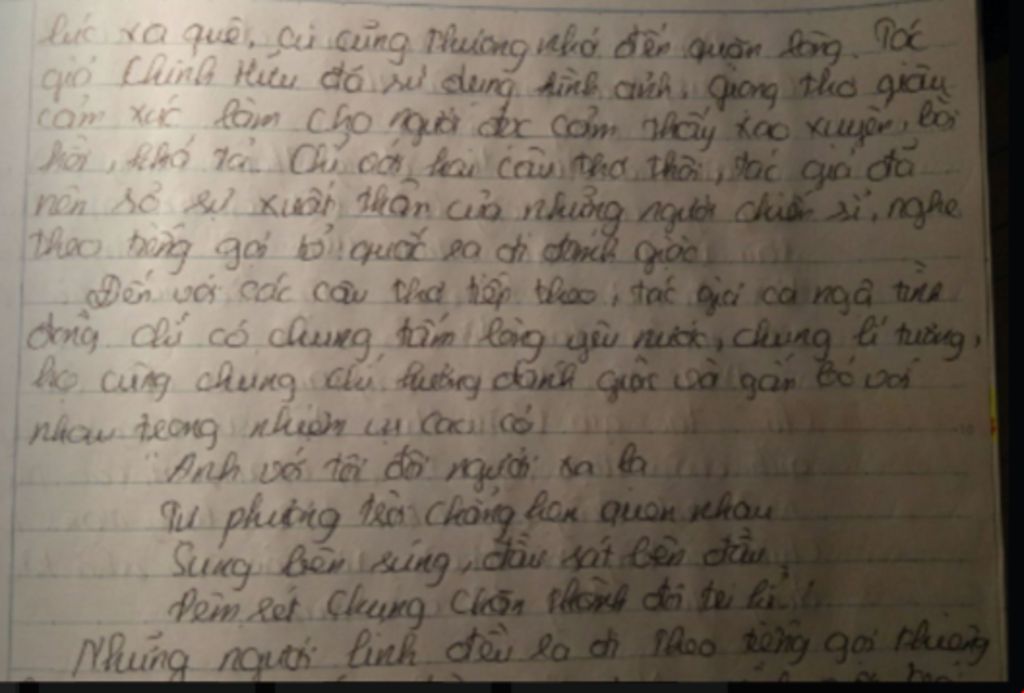 lúc xa quê, ai cũng thương nhớ đến quặn lòng. Tác
giả Chính Hữu đã sử dụng hình ảnh, giọng thơ giàu
cảm xúc làm cho người đọc cảm thấy xao xuyến, bồi
hồi, khó tả. Chỉ với hai câu thơ thôi, tác giả đã
nên sự xuất thân của những người chiến sĩ, nghe
theo tiếng gọi tổ quốc ra đi đánh giặc
Đến với các câu thơ tiếp theo, tác giả ca ngợi tình
đồng chí có chung tấm lòng yêu nước, chung lí tưởng,
họ cùng chung chí hướng đánh giặc và gắn bó với
nhau trong nhiệm vụ cao cả
"Anh với tôi đôi người xa lạ
Tự phương trời chẳng hẹn quen nhau
Súng bên súng, đầu sát bên đầu
Đêm rét chung chăn thành đôi tri kỉ"
Những người lính đều ra đi theo tiếng gọi thiêng